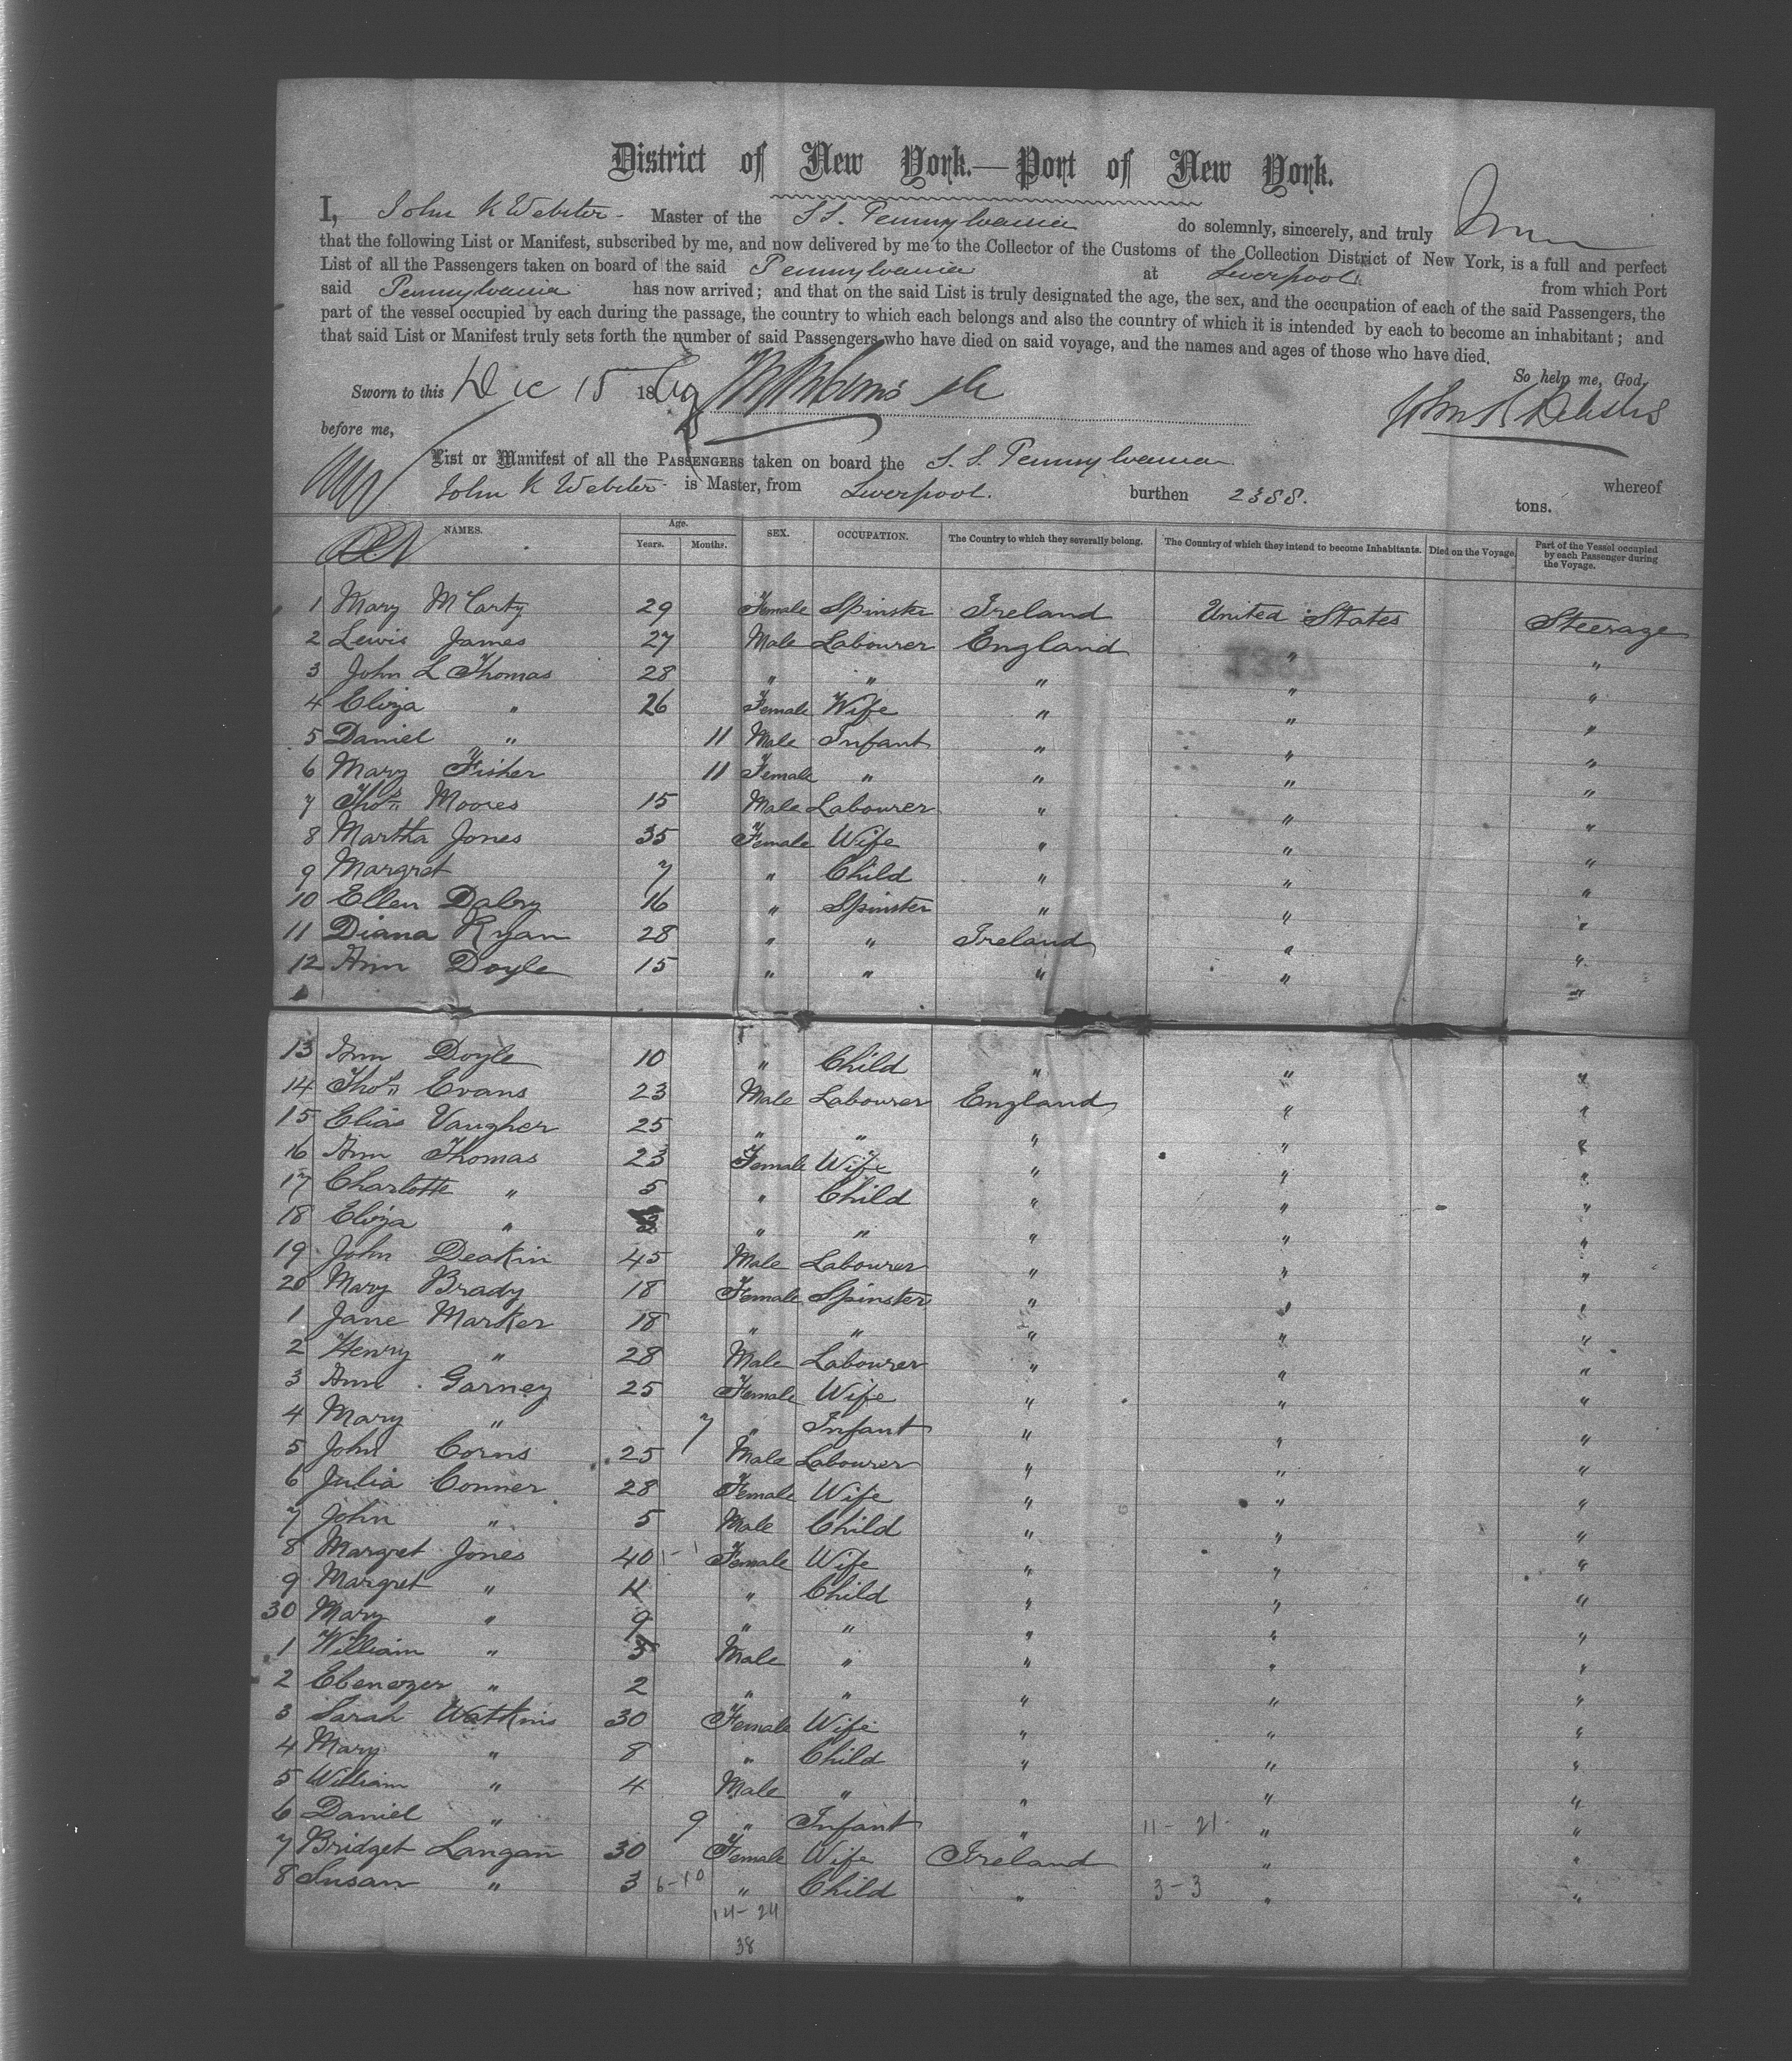 District of New York.—Port of New York.
I, John K Webster Master of the S.S. Pennsylvania do solemnly, sincerely, and truly
that the following List or Manifest, subscribed by me, and now delivered by me to the Collector of the Customs of the Collection District of New York, is a full and perfect
List of all the Passengers taken on board of the said Pennsylvania at Liverpool from which Port
said Pennsylvania has now arrived; and that on the said List is truly designated the age, the sex, and the occupation of each of the said Passengers, the
part of the vessel occupied by each during the passage, the country to which each belongs and also the country of which it is intended by each to become an inhabitant; and
that said List or Manifest truly sets forth the number of said Passengers who have died on said voyage, and the names and ages of those who have died.
So help me, God,
Sworn to this Dec 15 1869
before me,
List or Manifest of all the PASSENGERS taken on board the S.S. Pennsylvania whereof
John K Webster is Master, from Liverpool. burthen 2388. tons.
NAMES. Age. Years. Months. SEX. OCCUPATION. The Country to which they severally belong. The Country of which they intend to become Inhabitants. Died on the Voyage. Part of the Vessel occupied by each Passenger during the Voyage.
1 Mary McCarty 29 Female Spinster Ireland United States Steerage
2 Lewis James 27 Male Labourer England " "
3 John L Thomas 28 " " " " "
4 Eliza " 26 Female Wife " " "
5 Daniel " 11 Male Infant " " "
6 Mary Fisher 11 Female " " " "
7 Thos Moores 15 Male Labourer " " "
8 Martha Jones 35 Female Wife " " "
9 Margret 7 " Child " " "
10 Ellen Dabry 16 " Spinster " " "
11 Diana Ryan 28 " " Ireland " "
12 Ann Doyle 15 " " " " "
13 Ann Doyle 10 " Child " " "
14 Thos Evans 23 Male Labourer England " "
15 Elias Vaugher 25 " " " " "
16 Ann Thomas 23 Female Wife " " "
17 Charlotte " 5 " Child " " "
18 Eliza " " " " " "
19 John Deakin 45 Male Labourer " " "
20 Mary Brady 18 Female Spinster " " "
1 Jane Marker 18 " " " " "
2 Henry " 28 Male Labourer " " "
3 Ann Garney 25 Female Wife " " "
4 Mary " 7 " Infant " " "
5 John Corns 25 Male Labourer " " "
6 Julia Conner 28 Female Wife " " "
7 John " 5 Male Child " " "
8 Margret Jones 40 Female Wife " " "
9 Margret " 11 " Child " " "
30 Mary " 9 " " " " "
1 William " 5 Male " " " "
2 Ebenezer " 2 " " " " "
3 Sarah Watkins 30 Female Wife " " "
4 Mary " 8 " Child " " "
5 William " 4 Male " " " "
6 Daniel " 9 " Infant " 11-21 " "
7 Bridget Langan 30 Female Wife Ireland " "
8 Susan " 3 6-10 " Child " 3-3 " "
14-24
38